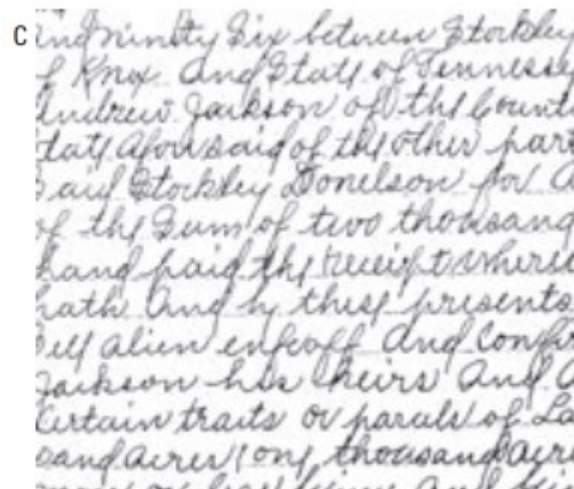 C
and ninety Six between Stockley
of Knox and State of Tennessee
Andrew Jackson of the Count
State afousaid of the other part
Said Stockley Donelson for a
of the Sum of two thousand
hand paid the receipt where
hath and by these presents
Sell alien enfeoff and Confir
Jackson his heirs and a
Certain traits or parals of La
sand acres one thousand acre